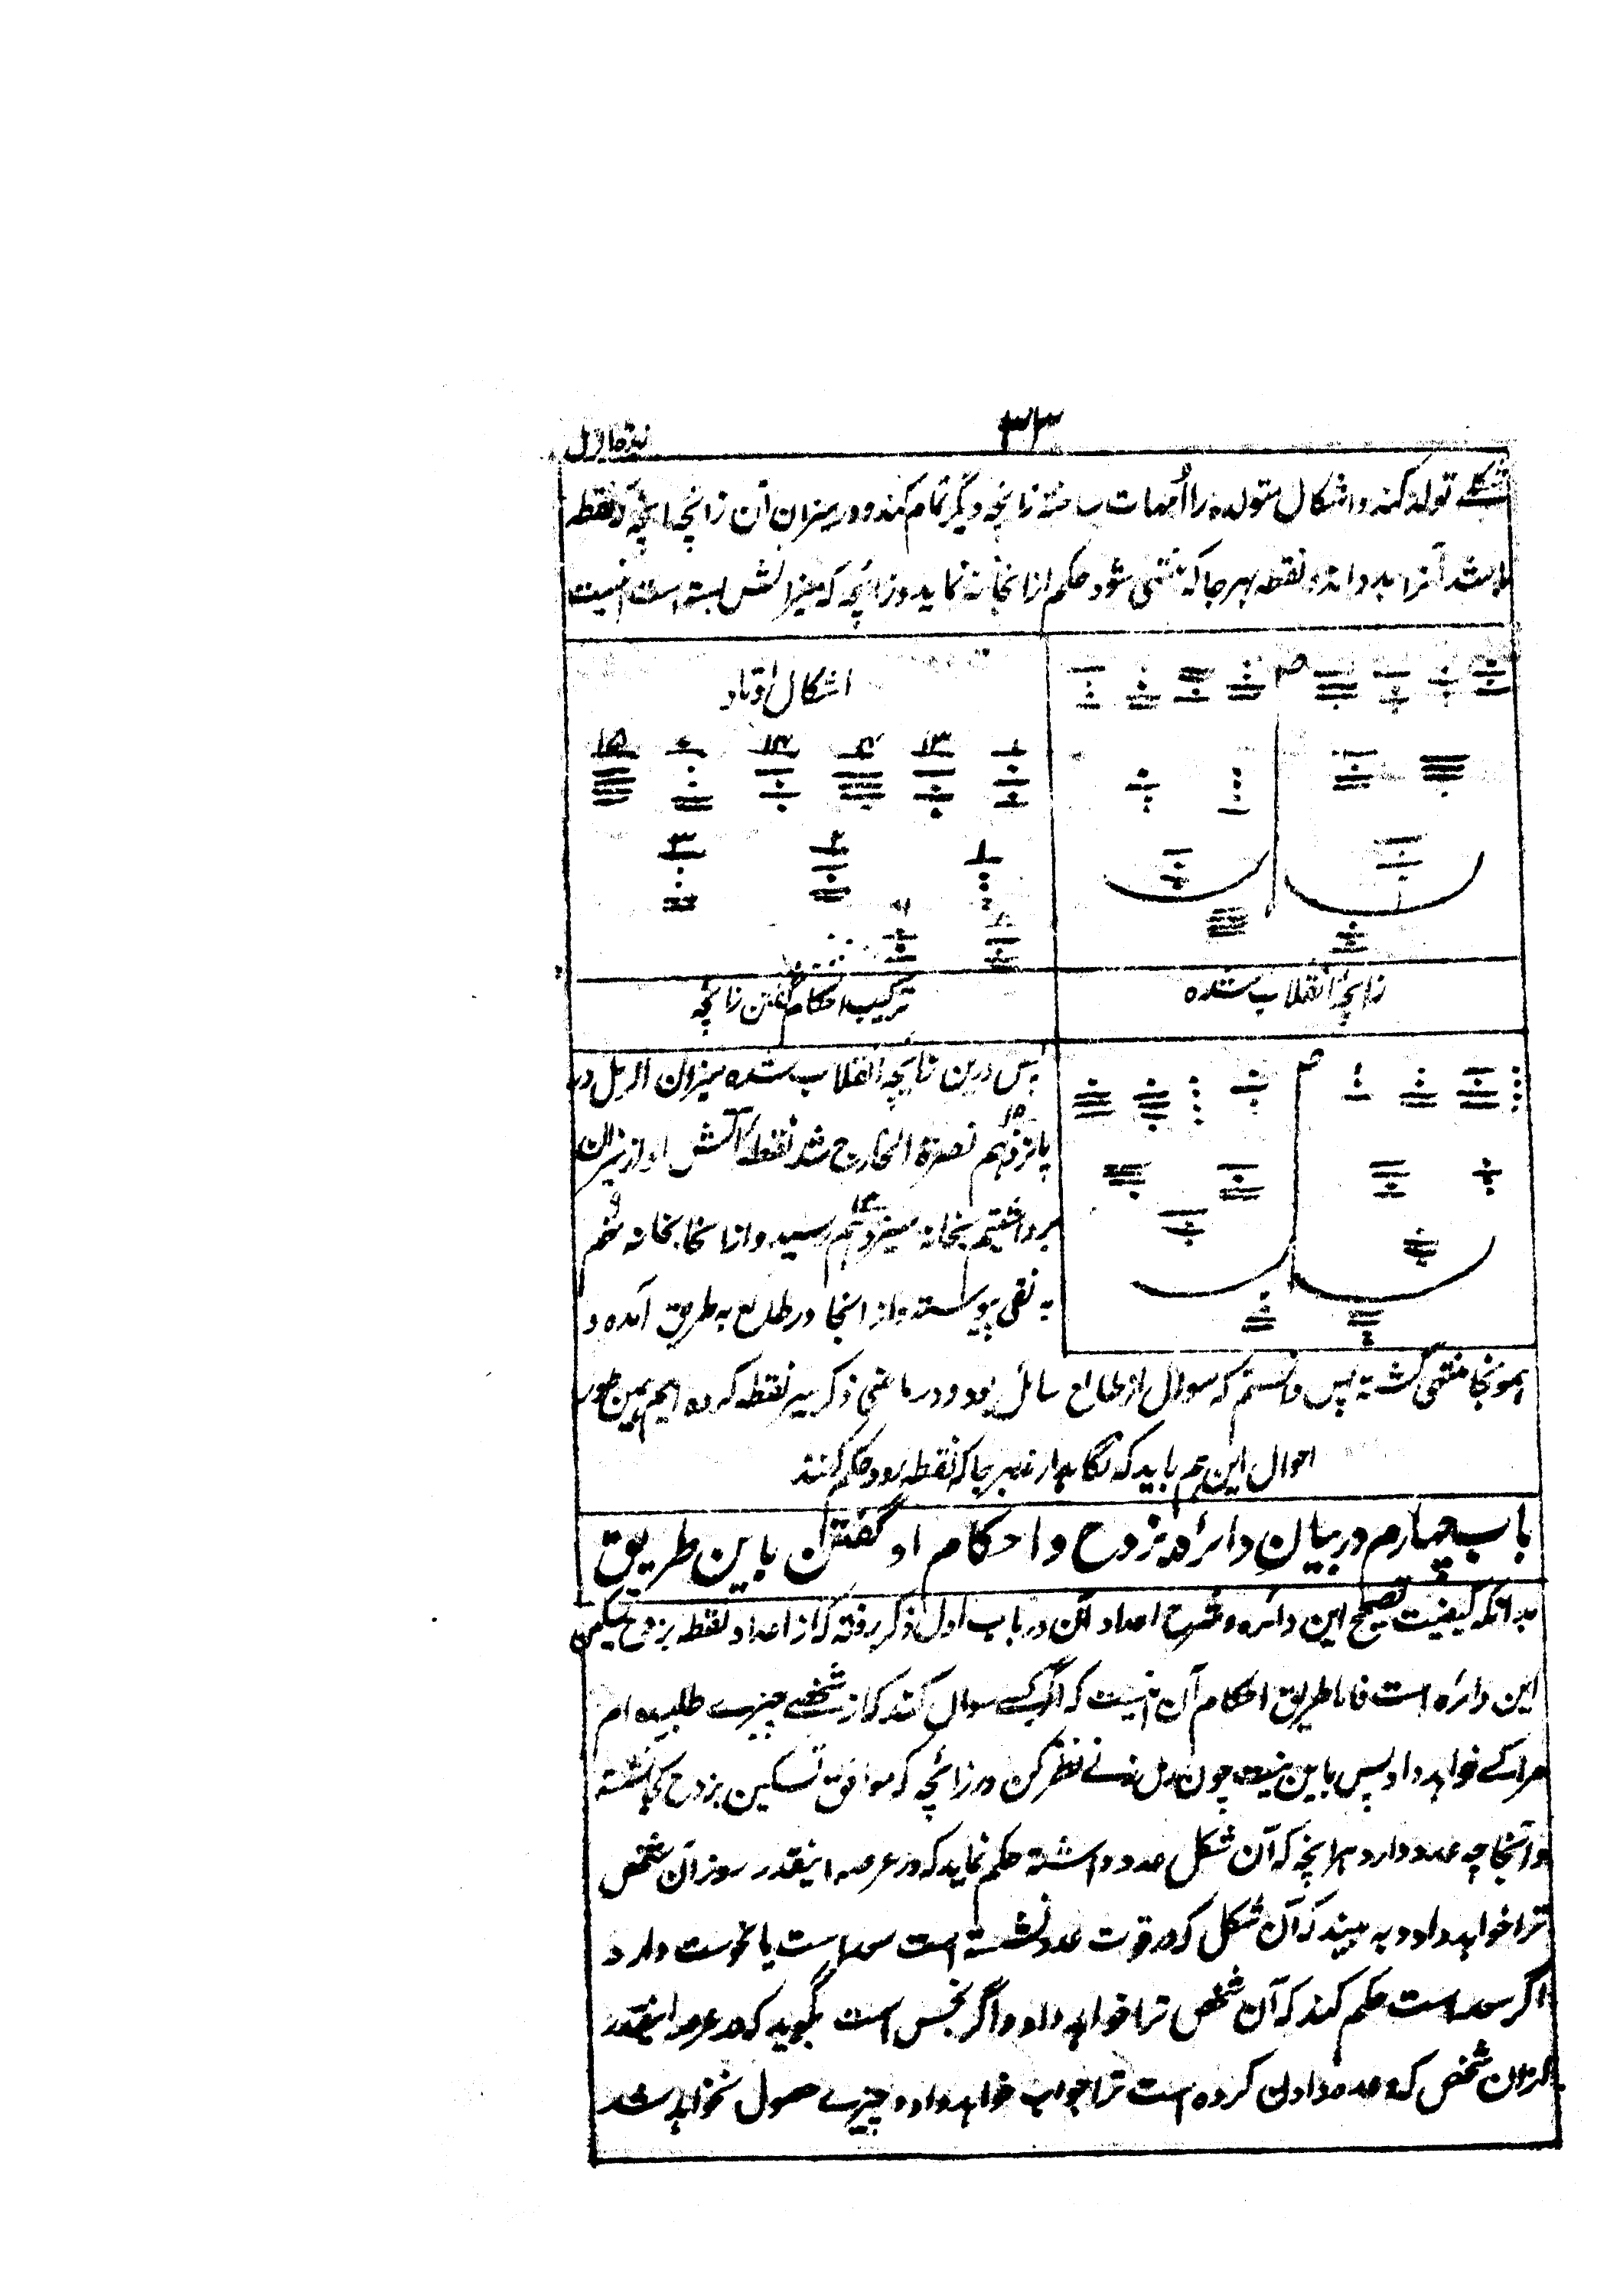 ۳۳
شکلے تولد کند و اشکال متولده را اُمهات ساخته زائچه دیگر تمام کند و در میزان آن زائچه انچه نقطه
باشد آنرا بدواند و نقطه بهر جا که منتهی شود حکم ازانجانه نماید و زائچه که میزانش بسته است اینست
اشکال اوتاد
۱ ۱۳ ۴ ۱۴ ۷ ۱۵
۱ ۲ ۳
زائچه انقلاب شده
ترکیب احکام گفتن زائچه
پس درین زائچه انقلاب شده میزان الرمل در
پانزدهم ۱۵ نصرة الخارج شد نقطه آتش او از میزان
برداشتیم بخانه سیزدهم ۱۳ رسید و ازانجا بخانه نهم ۹
به نقی پیوسته و از انجا در طالع به طریق آمده و
همونجا منتهی گشته پس دانستم که سوال از طالع سائل بود و در ماضی ذکر سیر نقطه کرده ایم همین طور
احوال این هم باید که نگاهدارند هر جا که نقطه رود حکم کنند
باب چهارم در بیان دائره بزدح و احکام او گفتن باین طریق
بدانکه کیفیت تصحیح این دائره و شرح اعداد آن در باب اول ذکر رفته که از اعداد نقطه بزدح تسکین
این دائره است فاما طریق احکام آن اینست که اگر کسے سوال کند که از شخصے چیزے طلبیده ام
مرا کے خواهد داد پس باین نیت چون رمل زنے نظر کن در زائچه که موافق تسکین بزدح کجا نشسته
و آنجا چه عدد دارد هر انچه که آن شکل عدد داشته حکم نماید که در عرصه اینقدر روز آن شخص
ترا خواهد داد و به بیند که آن شکل که در قوت عدد نشسته است سعد است یا نحوست دارد
اگر سعد است حکم کند که آن شخص ترا خواهد داد و اگر نحس است بگوید که در عرصه اینقدر
روز آن شخص که وعده دادن کرده است ترا جواب خواهد داد و چیزے حصول نخواهد شد